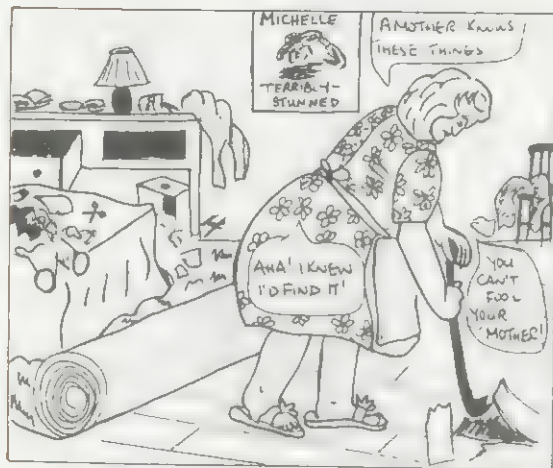 MICHELLE
TERRIBLY-
STUNNED
A MOTHER KNOWS
THESE THINGS
AHA! I KNEW
I'D FIND IT!
YOU
CAN'T
FOOL
YOUR
MOTHER!